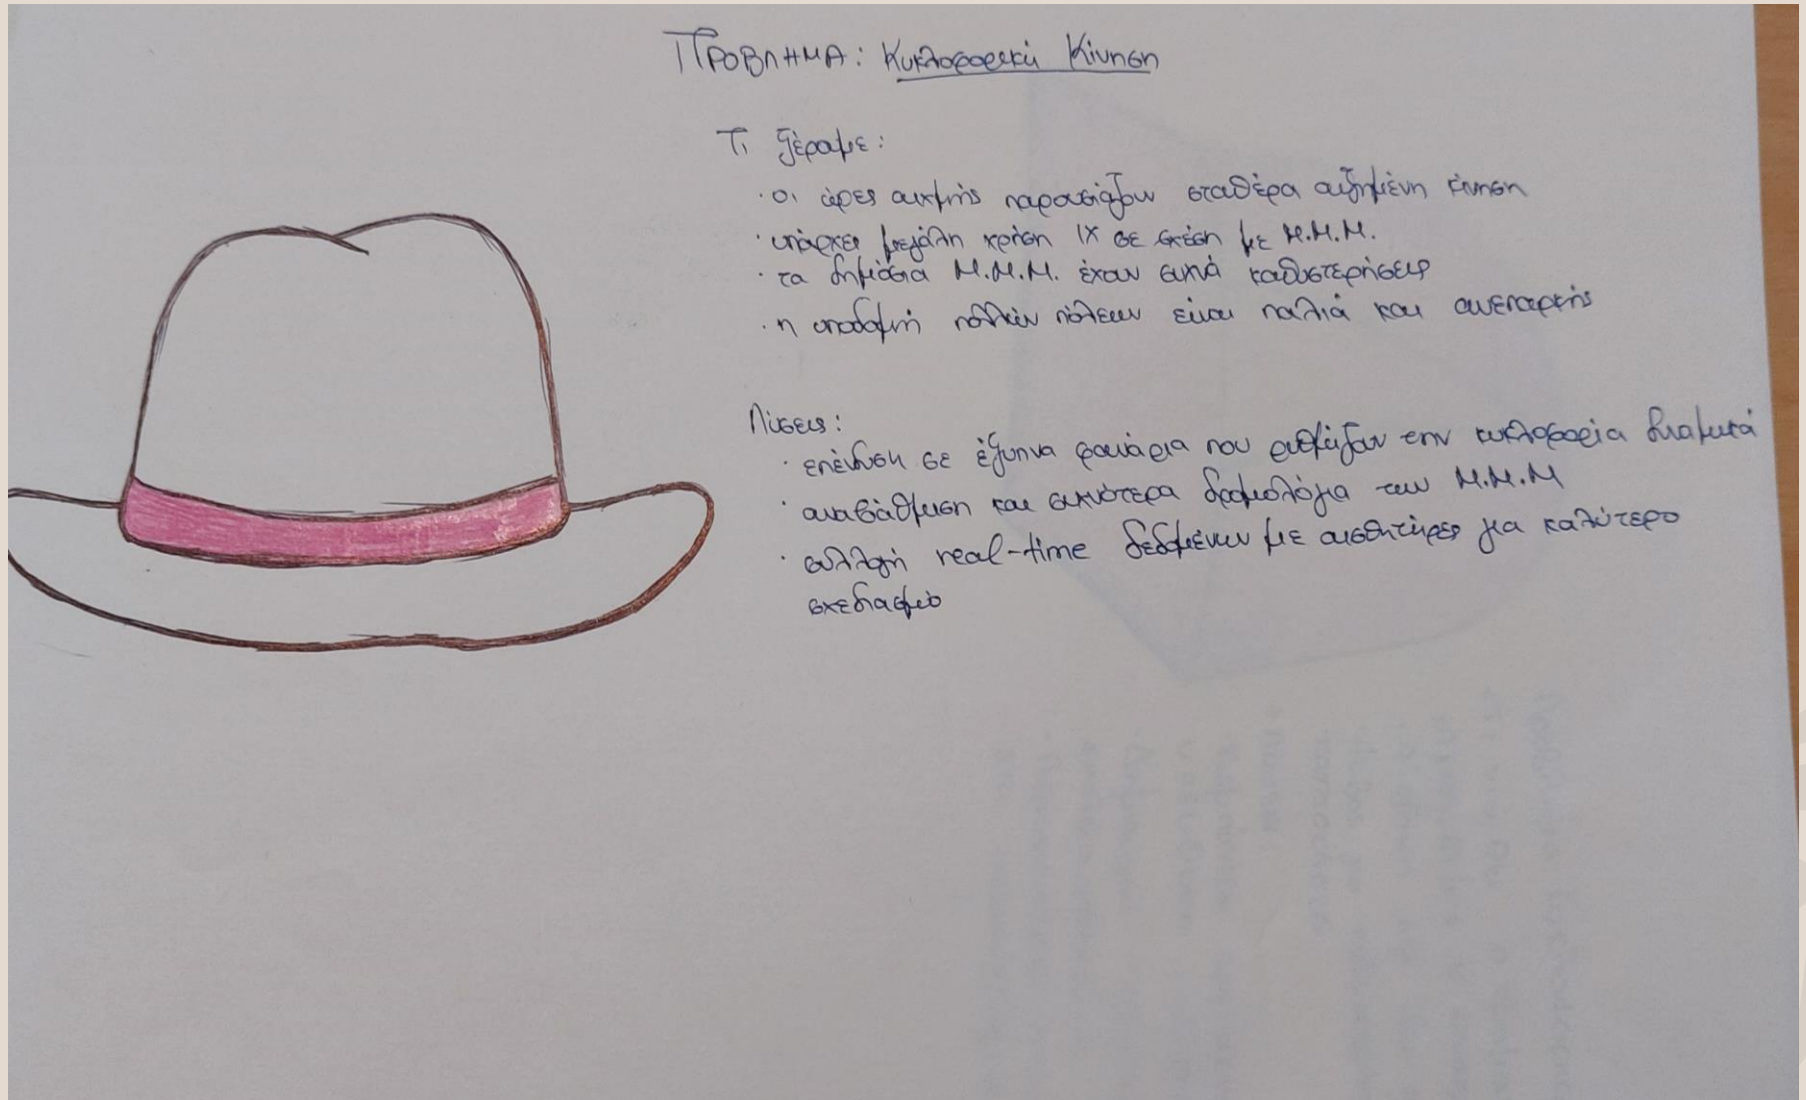 ΠΡΟΒΛΗΜΑ: Κυκλοφοριακή Κίνηση
Τι ξέραμε:
· οι ώρες αιχμής παρουσιάζουν σταθερά αυξημένη κίνηση
· υπάρχει μεγάλη χρήση ΙΧ σε σχέση με Μ.Μ.Μ.
· τα δημόσια Μ.Μ.Μ. έχουν συχνά καθυστερήσεις
· η υποδομή πολλών πόλεων είναι παλιά και ανεπαρκής
Λύσεις:
· επένδυση σε έξυπνα φανάρια που ρυθμίζουν την κυκλοφορία δυναμικά
· αναβάθμιση και συχνότερα δρομολόγια των Μ.Μ.Μ
· συλλογή real-time δεδομένων με αισθητήρες για καλύτερο
σχεδιασμό